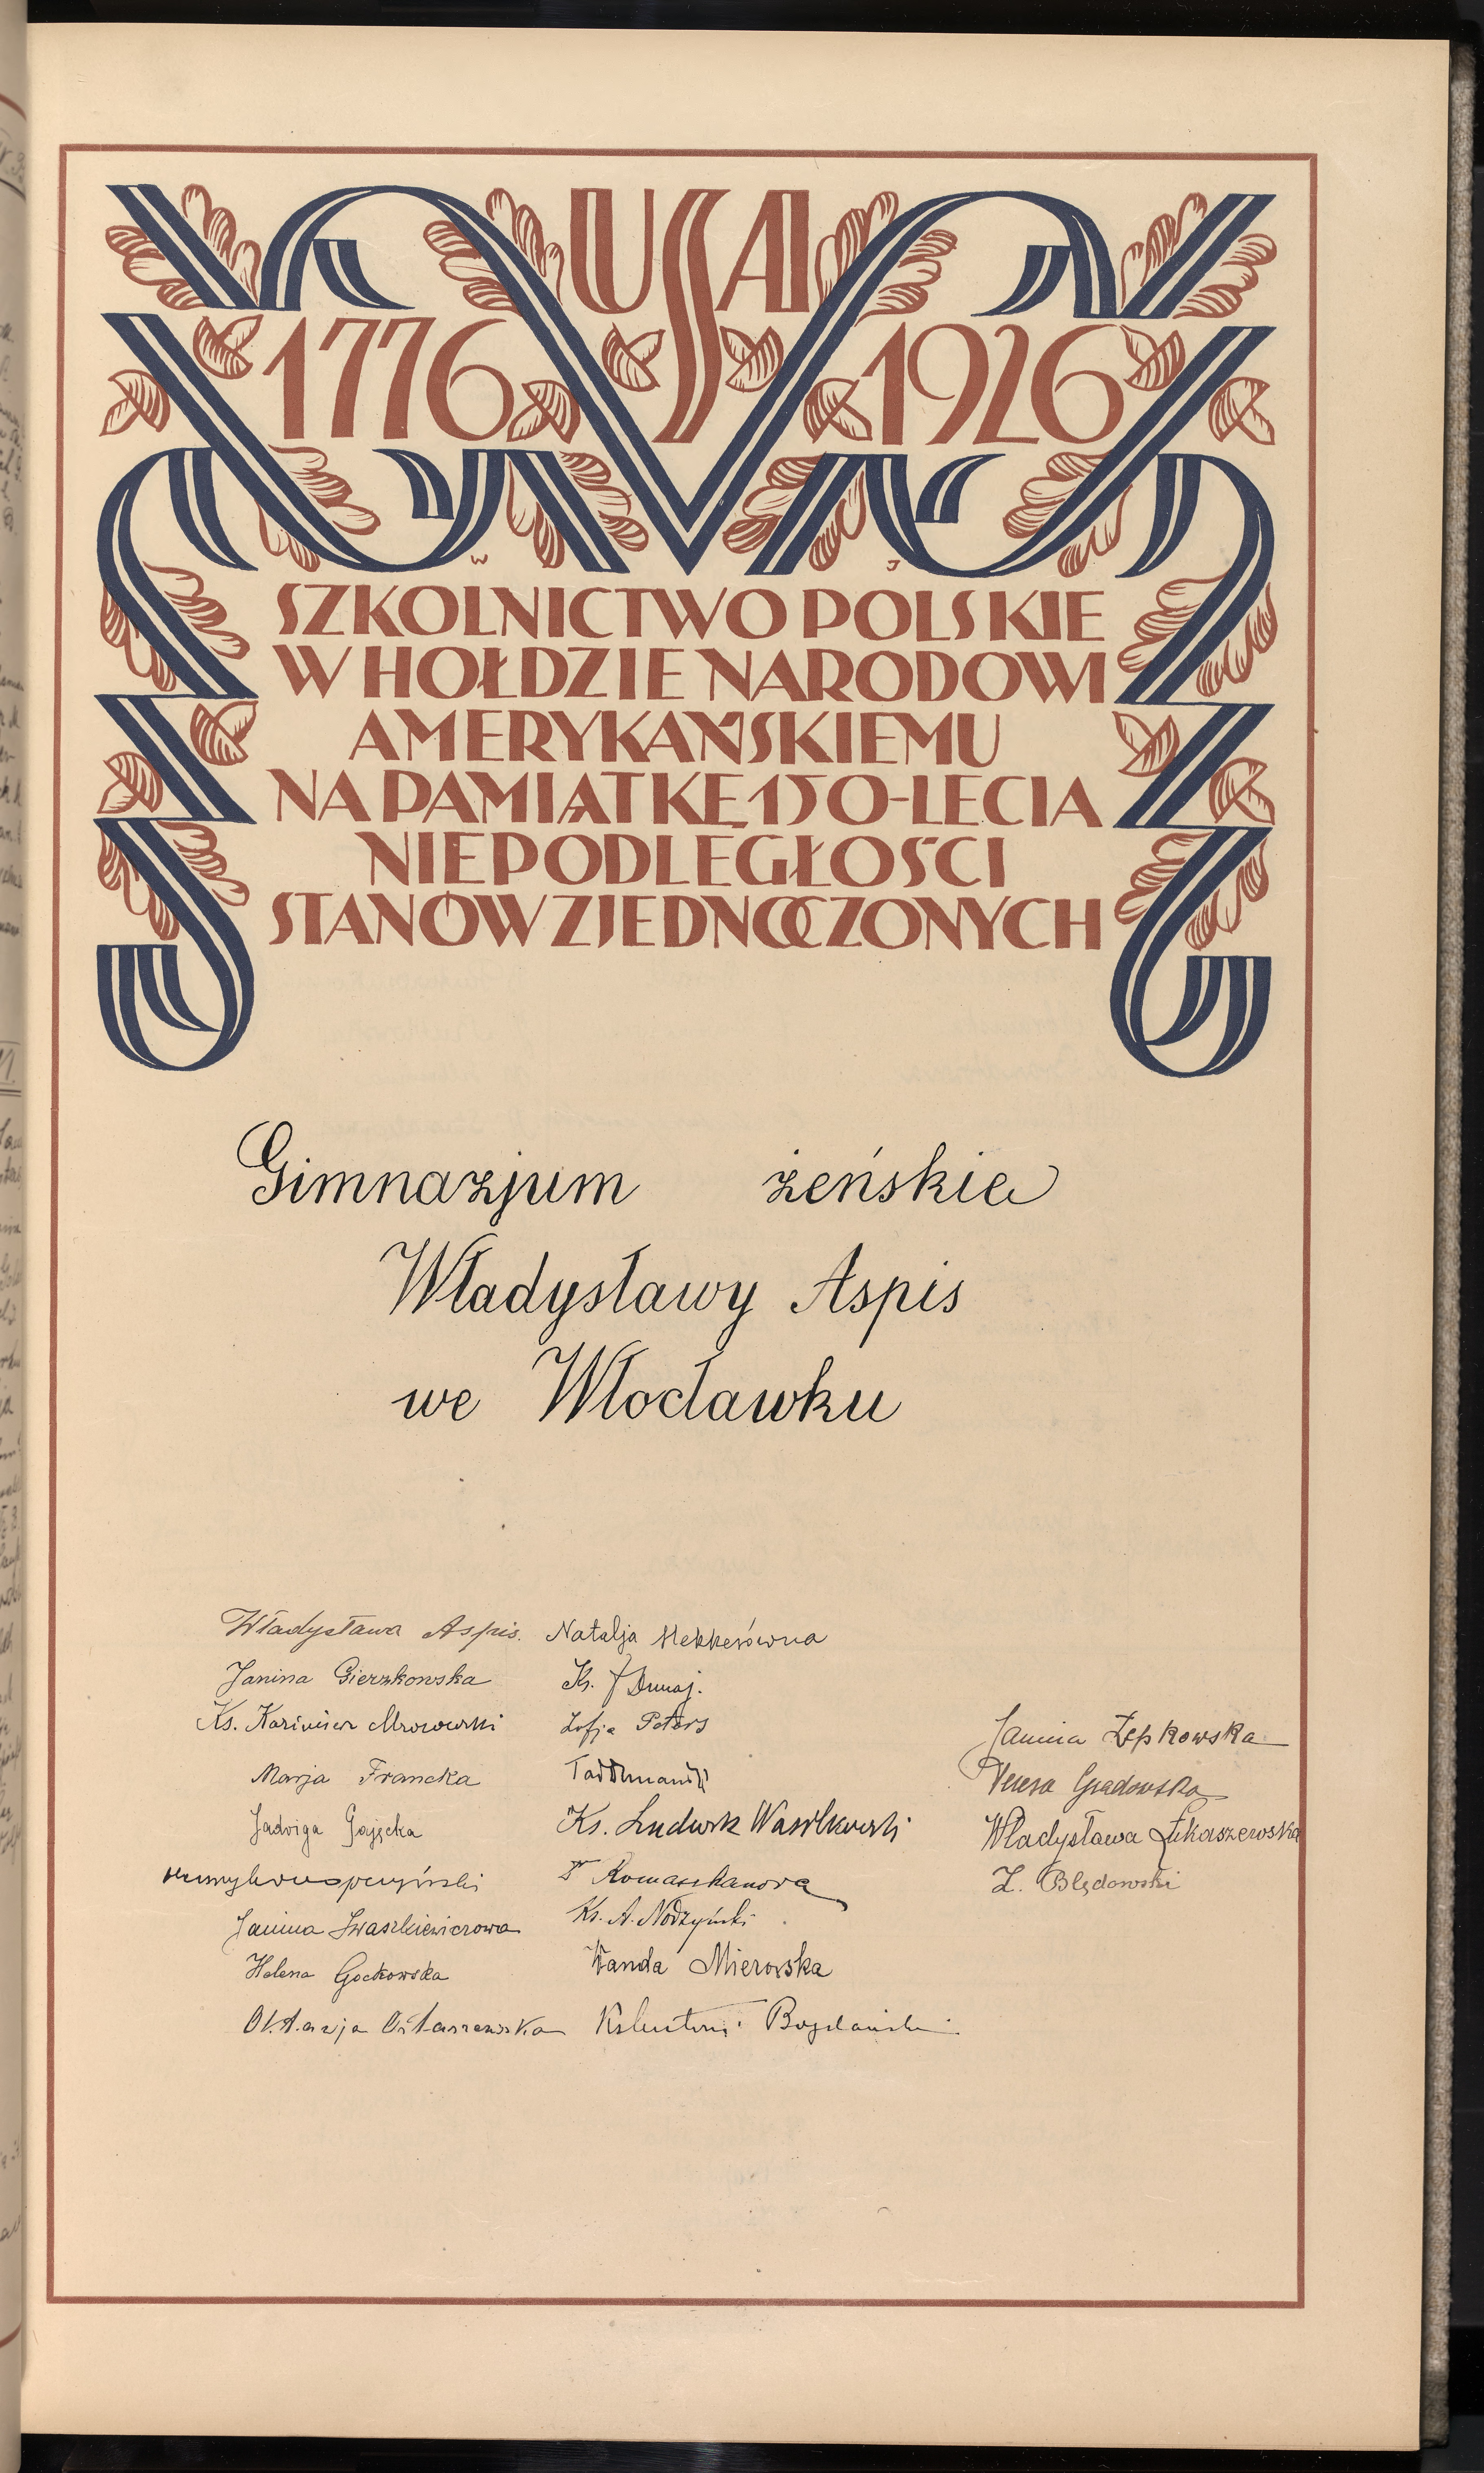 USA
1776 1926
W J
SZKOLNICTWO POLSKIE
W HOŁDZIE NARODOWI
AMERYKAŃSKIEMU
NA PAMIĄTKĘ 150-LECIA
NIEPODLEGŁOŚCI
STANÓW ZJEDNOCZONYCH
Gimnazjum żeńskie
Władysławy Aspis
we Włocławku
Władysława Aspis.
Janina Gierzkowska
Ks. Kazimierz Mrozowski
Marja Francka
Jadwiga Gajęcka
Janina Iwaszkiewiczowa
Helena Gockowska
Oktawja Ostaszewska
Natalja Hekkerówna
Ks. J Dunaj.
Zofja Peters
Ks. Ludwik Wasilkowski
Romaszkanowa
Ks. A. Nodzyński
Wanda Mierowska
Bogdański
Janina Zepkowska
Teresa Grądowska
Władysława Łukaszewska
Z. Błędowski